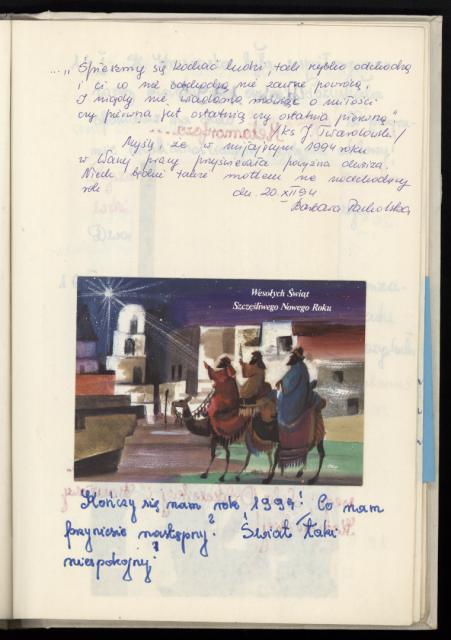 ..." Śpieszmy się kochać ludzi, tak szybko odchodzą
i ci co nie odchodzą nie zawsze powrócą,
I nigdy nie wiadomo mówiąc o miłości
czy pierwsza jest ostatnią czy ostatnia pierwszą"
/ks J. Twardowski/
Myślę że w mijającym 1994 roku
w Waszej pracy przyświecała powyższa dewiza.
Niech będzie także mottem na nadchodzący
rok
dn. 20.XII 94
Barbara
Wesołych Świąt
Szczęśliwego Nowego Roku
Kończy się nam rok 1994! Co nam
przyniesie następny? Świat taki
niespokojny!